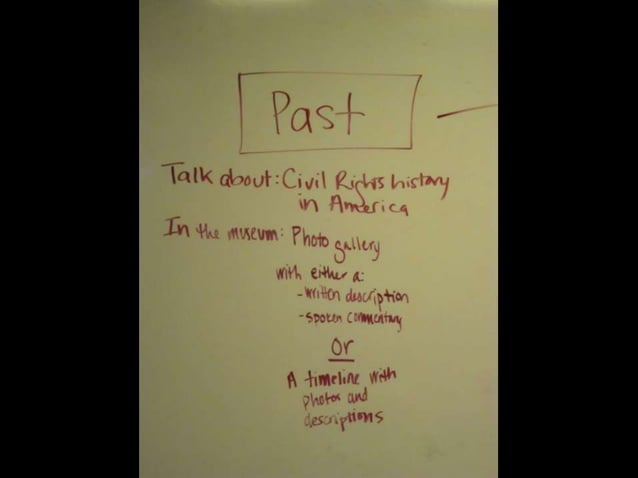 Past
Talk about: Civil Rights history
in America
In the museum: Photo gallery
with either a:
- written description
- spoken commentary
or
A timeline with
photos and
descriptions